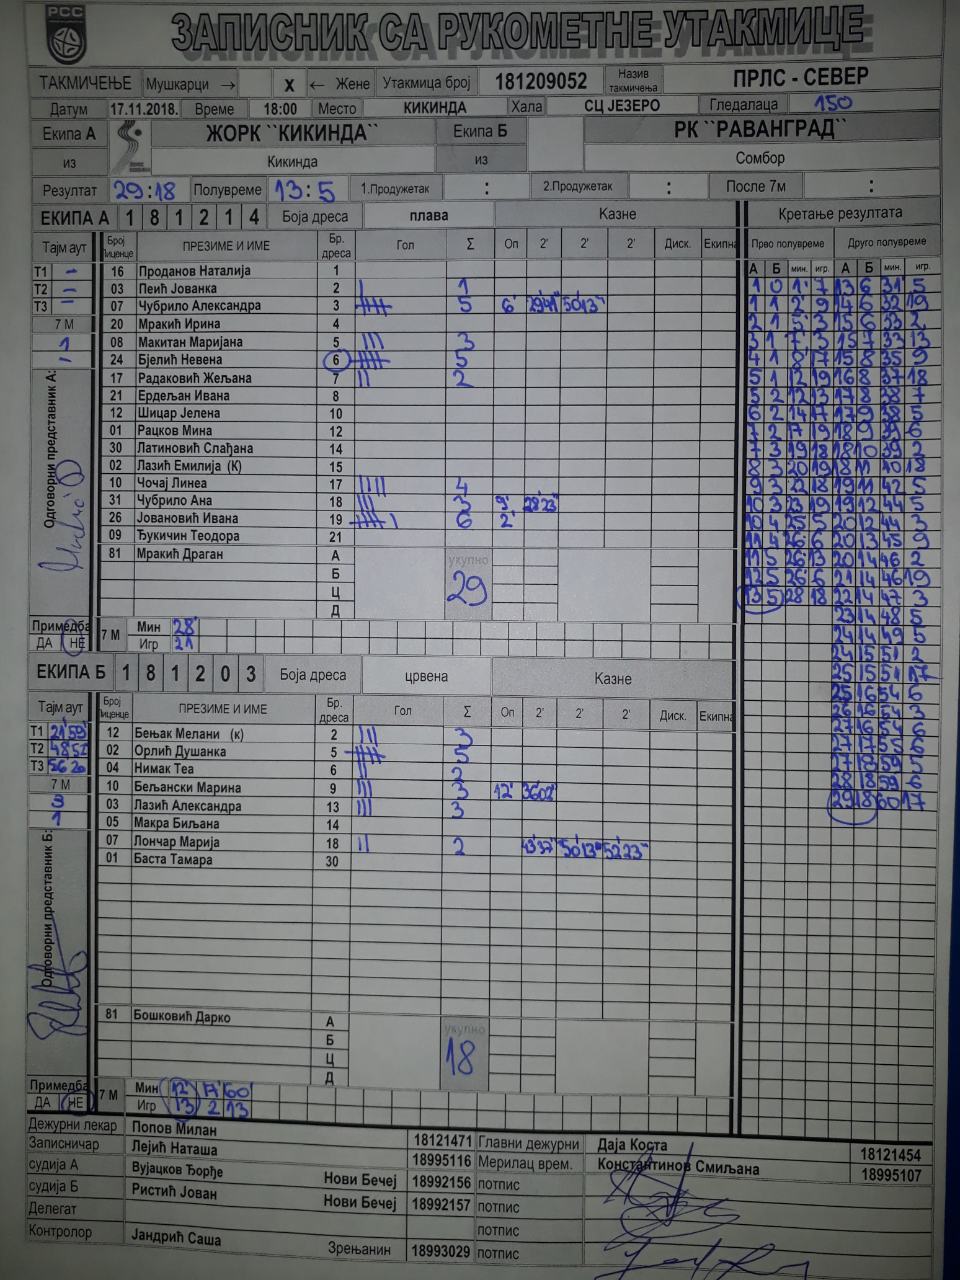 РСС
ЗАПИСНИК СА РУКОМЕТНЕ УТАКМИЦЕ
ТАКМИЧЕЊЕ Мушкарци → X ← Жене Утакмица број 181209052 Назив такмичења ПРЛС - СЕВЕР
Датум 17.11.2018. Време 18:00 Место КИКИНДА Хала СЦ ЈЕЗЕРО Гледалаца 150
Екипа А ЖОРК ``КИКИНДА`` Екипа Б РК ``РАВАНГРАД``
из Кикинда из Сомбор
Резултат 29:18 Полувреме 13:5 1.Продужетак : 2.Продужетак : После 7м :
ЕКИПА А 1 8 1 2 1 4 Боја дреса плава Казне Кретање резултата
Тајм аут Број Лиценце ПРЕЗИМЕ И ИМЕ Бр. дреса Гол Σ Оп 2' 2' 2' Диск. Екипна Прво полувреме Друго полувреме
А Б мин. игр. А Б мин. игр.
Т1 – 16 Проданов Наталија 1
Т2 – 03 Пеић Јованка 2 1
Т3 – 07 Чубрило Александра 3 5 6' 29'41" 50'13"
7 М 20 Мракић Ирина 4
1 08 Макитан Маријана 5 3
24 Бјелић Невена 6 5
17 Радаковић Жељана 7 2
21 Ердељан Ивана 8
12 Шицар Јелена 10
01 Рацков Мина 12
30 Латиновић Слађана 14
02 Лазић Емилија (К) 15
10 Чочај Линеа 17 4
31 Чубрило Ана 18 3 9' 28'23"
26 Јовановић Ивана 19 6 2'
09 Ђукичин Теодора 21
81 Мракић Драган А укупно
Б 29
Ц
Д
Одговорни представник А:
Примедба ДА НЕ 7 М Мин 28'
Игр 21
ЕКИПА Б 1 8 1 2 0 3 Боја дреса црвена Казне
Тајм аут Број Лиценце ПРЕЗИМЕ И ИМЕ Бр. дреса Гол Σ Оп 2' 2' 2' Диск. Екипна
Т1 21'59" 12 Бењак Мелани (к) 2 3
Т2 48'52 02 Орлић Душанка 5 5
Т3 56'20 04 Нимак Теа 6 2
7 М 10 Бељански Марина 9 3 12' 36'02"
3 03 Лазић Александра 13 3
1 05 Макра Биљана 14
07 Лончар Марија 18 2 43'37" 50'13" 52'23"
01 Баста Тамара 30
Одговорни представник Б:
81 Бошковић Дарко А укупно
Б 18
Ц
Д
Примедба ДА НЕ 7 М Мин 12' 17' 60'
Игр 13 2 13
1 0 1' 7 13 6 31' 5
1 1 2' 9 14 6 32 19
2 1 3 3 15 6 33 2
3 1 7 3 15 7 33 13
4 1 8' 17 15 8 35 9
5 1 12 19 16 8 37 18
5 2 12 13 17 8 38 7
6 2 14 17 17 9 38 5
7 2 17 19 18 9 39 6
7 3 19 18 18 10 39 2
8 3 20 19 18 11 40 18
9 3 22 18 19 11 42 5
10 3 23 19 19 12 44 5
10 4 25 5 20 12 44 3
11 4 26 6 20 13 45 9
11 5 26 13 20 14 46 2
12 5 26 6 21 14 46 19
13 5 28 18 22 14 47 3
23 14 48 5
24 14 49 5
24 15 51 2
25 15 51 17
25 16 54 6
26 16 54 3
27 16 54 6
27 17 55 6
27 18 59 5
28 18 59 6
29 18 60 17
Дежурни лекар Попов Милан 18121471 Главни дежурни Даја Коста 18121454
Записничар Лејић Наташа 18995116 Мерилац врем. Константинов Смиљана 18995107
судија А Вујацков Ђорђе Нови Бечеј 18992156 потпис
судија Б Ристић Јован Нови Бечеј 18992157 потпис
Делегат потпис
Контролор Јандрић Саша Зрењанин 18993029 потпис